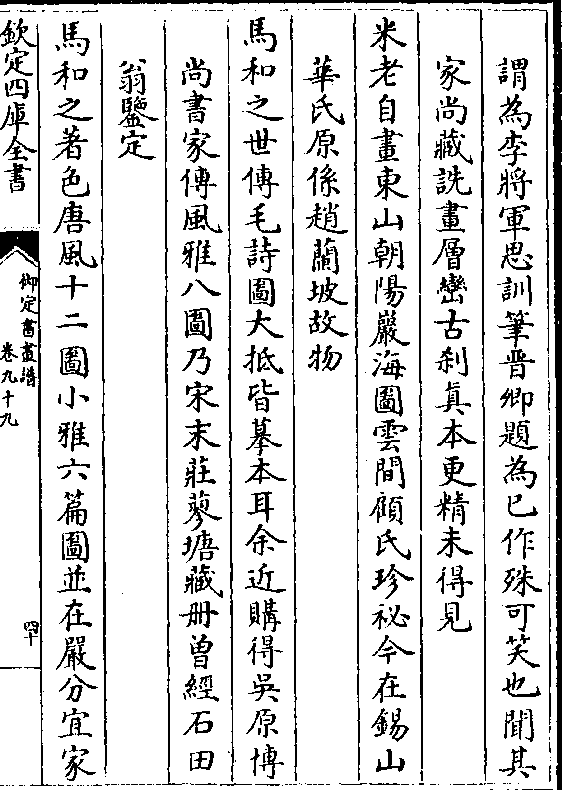 謂為李將軍思訓筆晉卿題為已作殊可笑也聞其
家尚藏詵畫層巒古刹真本更精未得見
米老自畫東山朝陽巖海圖雲間顧氏珍祕今在錫山
華氏原係趙蘭坡故物
馬和之世傳毛詩圖大抵皆摹本耳余近購得吳原博
尚書家傳風雅八圖乃宋末莊蓼塘藏册曽經石田
翁鑒定
馬和之著色唐風十二圖小雅六篇圖並在嚴分宜家
欽定四庫全書
御定書畫譜
卷九十九
四十